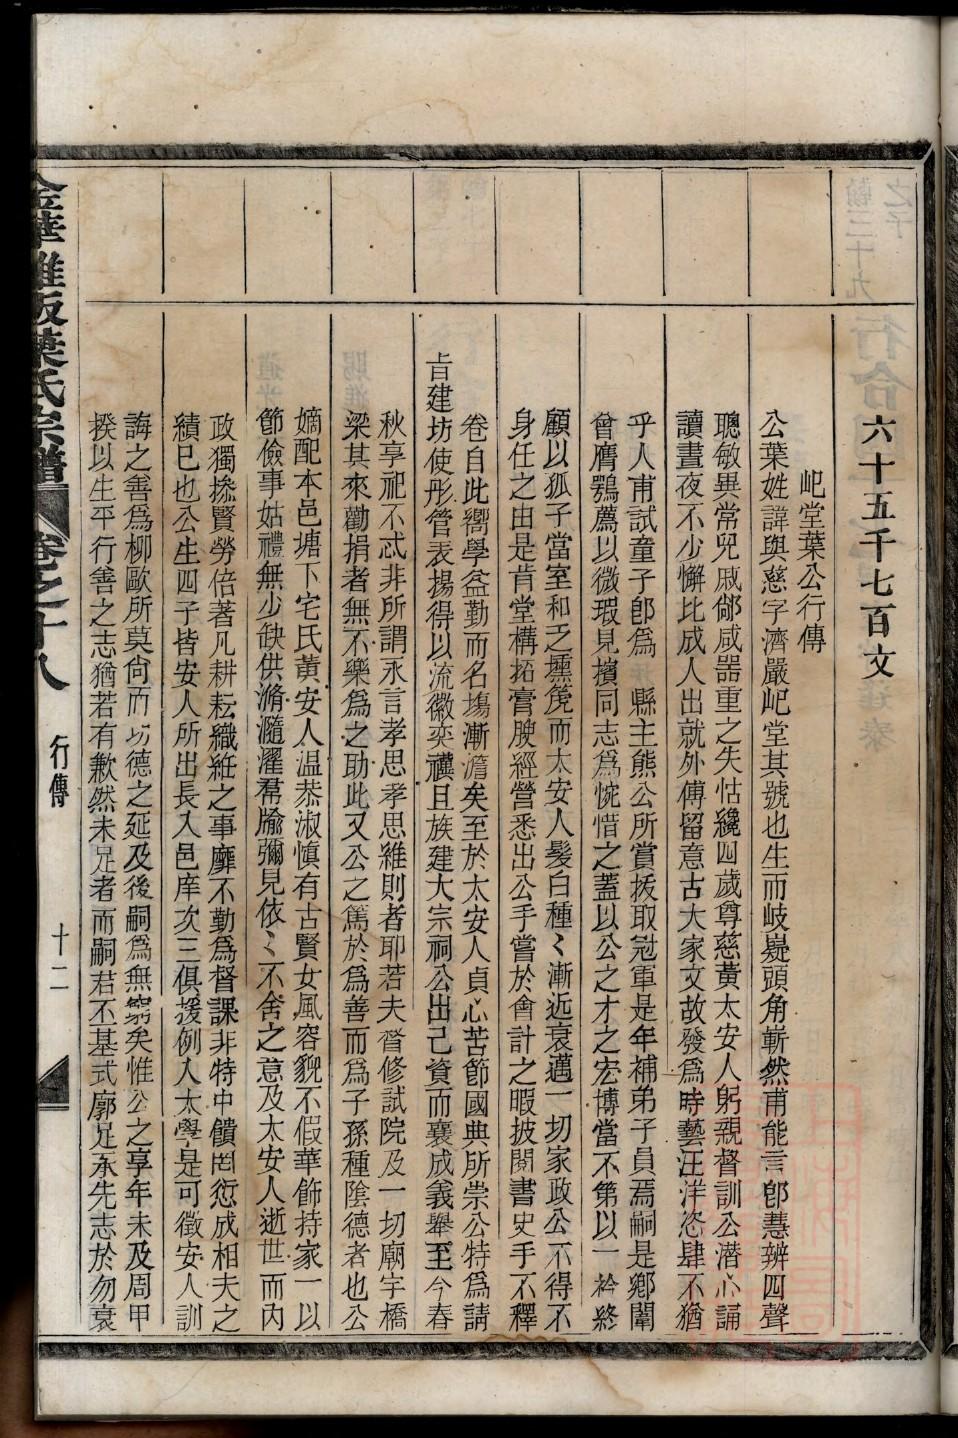 六十五千七百文
屺堂葉公行傳
公葉姓諱與慈字濟嚴屺堂其號也生而岐嶷頭角嶄然甫能言卽慧辨四聲
聰敏異常兒戚鄰咸器重之失怙纔四歲尊慈黃太安人躬親督訓公潛心誦
讀晝夜不少懈比成人出就外傅留意古大家文故發爲時藝汪洋恣肆不猶
乎人甫試童子卽爲　縣主熊公所賞拔取冠軍是年補弟子員焉嗣是鄉闈
曾膺鶚薦以微瑕見擯同志爲惋惜之蓋以公之才之宏博當不第以一衿終
顧以孤子當室和乏壎箎而太安人髮白種〻漸近衰邁一切家政公不得不
身任之由是肯堂構拓膏腴經營悉出公手嘗於會計之暇披閱書史手不釋
卷自此嚮學益勤而名塲漸澹矣至於太安人貞心苦節國典所崇公特爲請
旨建坊使彤管表揚得以流徽奕禩且族建大宗祠公出己資而襄成義舉至今春
秋享祀不忒非所謂永言孝思孝思維則者耶若夫胥修試院及一切廟宇橋
梁其來勸捐者無不樂爲之助此又公之篤於爲善而爲子孫種陰德者也公
嫡配本邑塘下宅氏黃安人温恭淑慎有古賢女風容貌不假華飾持家一以
節儉事姑禮無少缺供滫瀡濯帬牏彌見依〻不舍之意及太安人逝世而內
政獨操賢勞倍著凡耕耘織絍之事靡不勤爲督課非特中饋罔愆成相夫之
績已也公生四子皆安人所出長入邑庠次三俱援例入太學是可徵安人訓
誨之善爲柳歐所莫尙而功德之延及後嗣爲無窮矣惟公之享年未及周甲
揆以生平行善之志猶若有歉然未足者而嗣若丕基式廓足承先志於勿衰
金華雅坂葉氏宗譜　卷之十八　行傳　十二